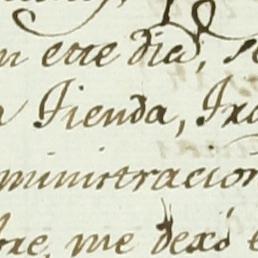 n este dia, se
a Tienda, Tra
ministracion
bre, me dexó e